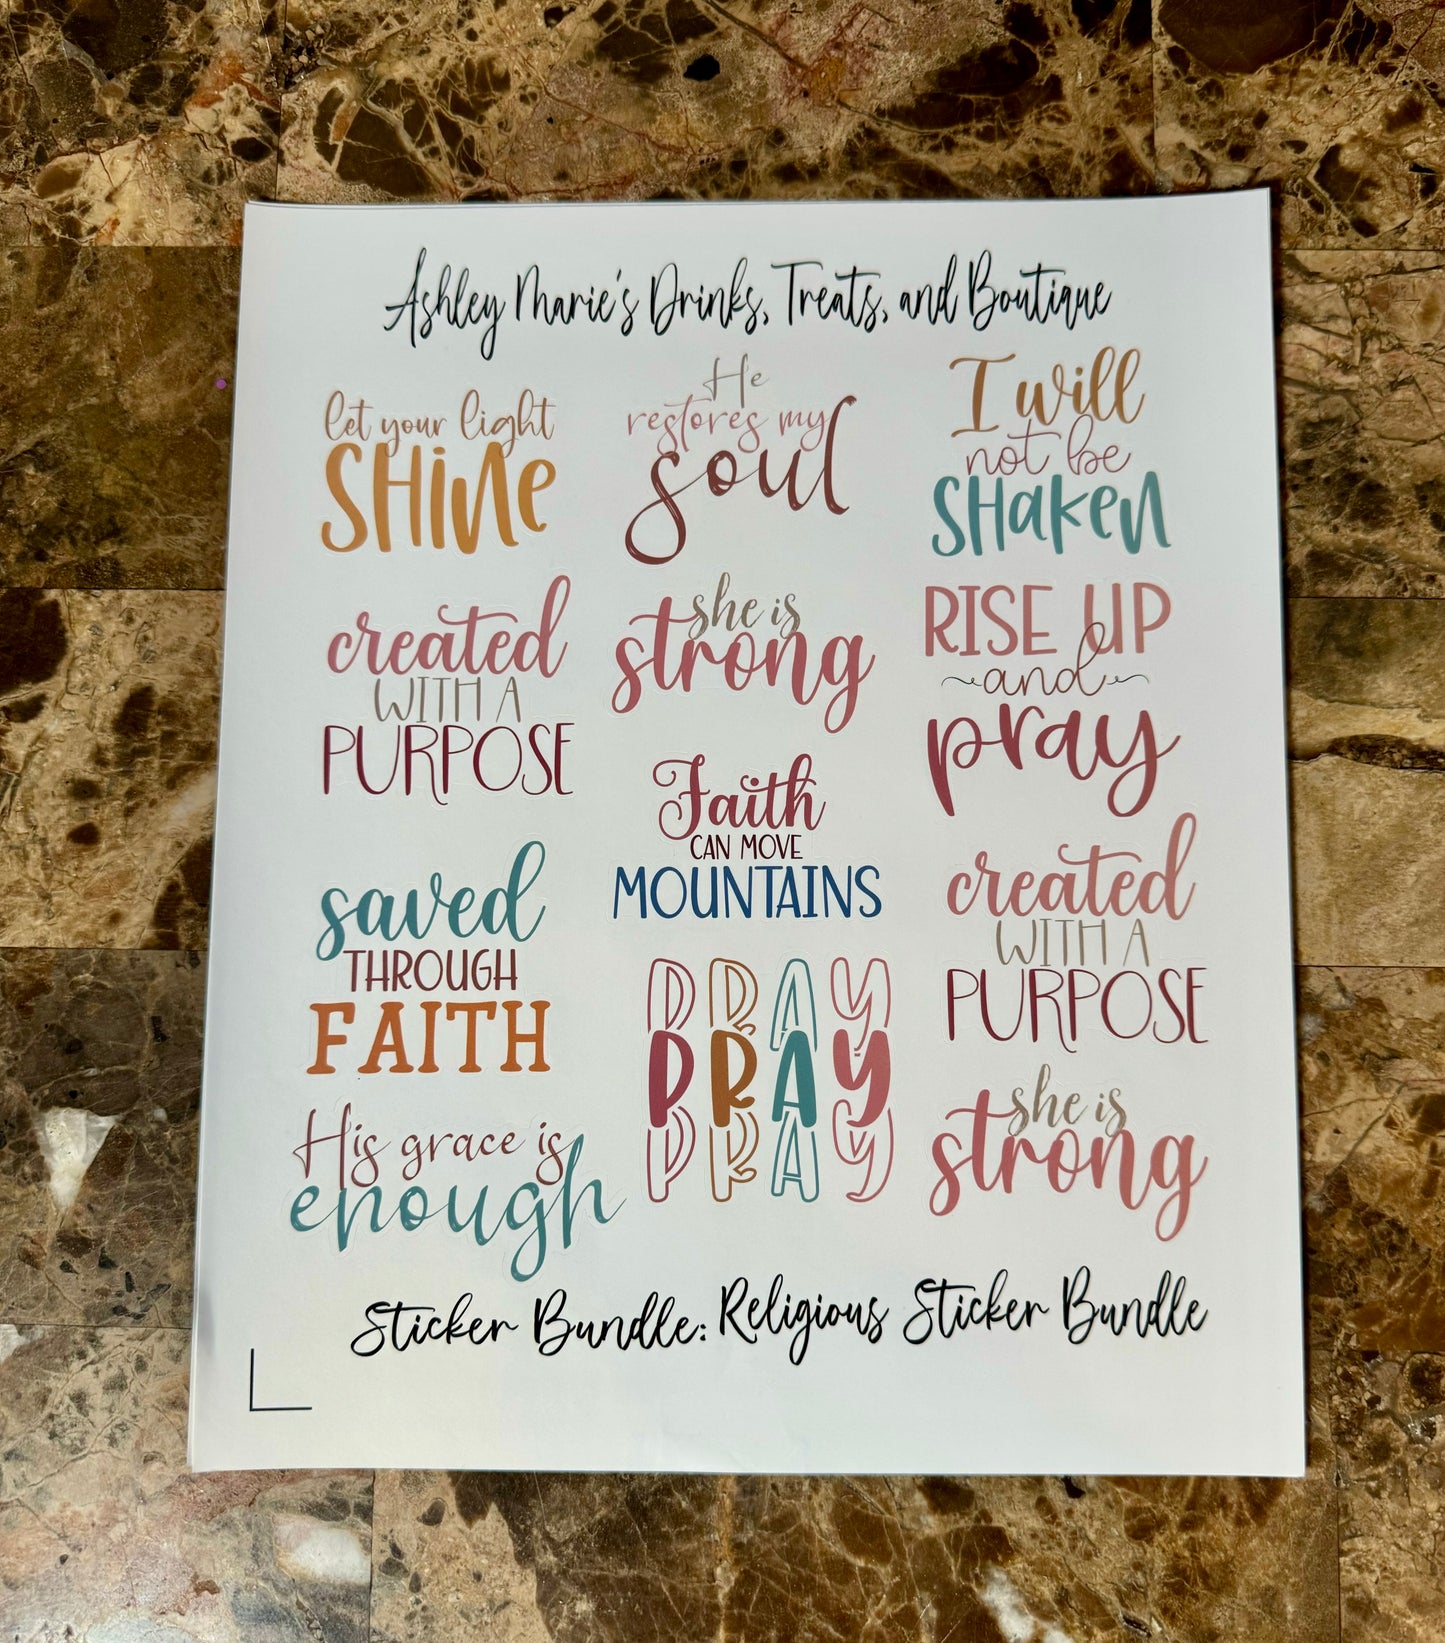 Ashley Marie's Drinks, Treats, and Boutique
let your light
SHiNe
He
restores my
soul
I will
not be
SHaKeN
created
WITH A
PURPOSE
she is
strong
RISE UP
and
pray
Faith
CAN MOVE
MOUNTAINS
saved
THROUGH
FAITH
PRAY
PRAY
PRAY
created
WITH A
PURPOSE
His grace is
enough
she is
strong
Sticker Bundle: Religious Sticker Bundle